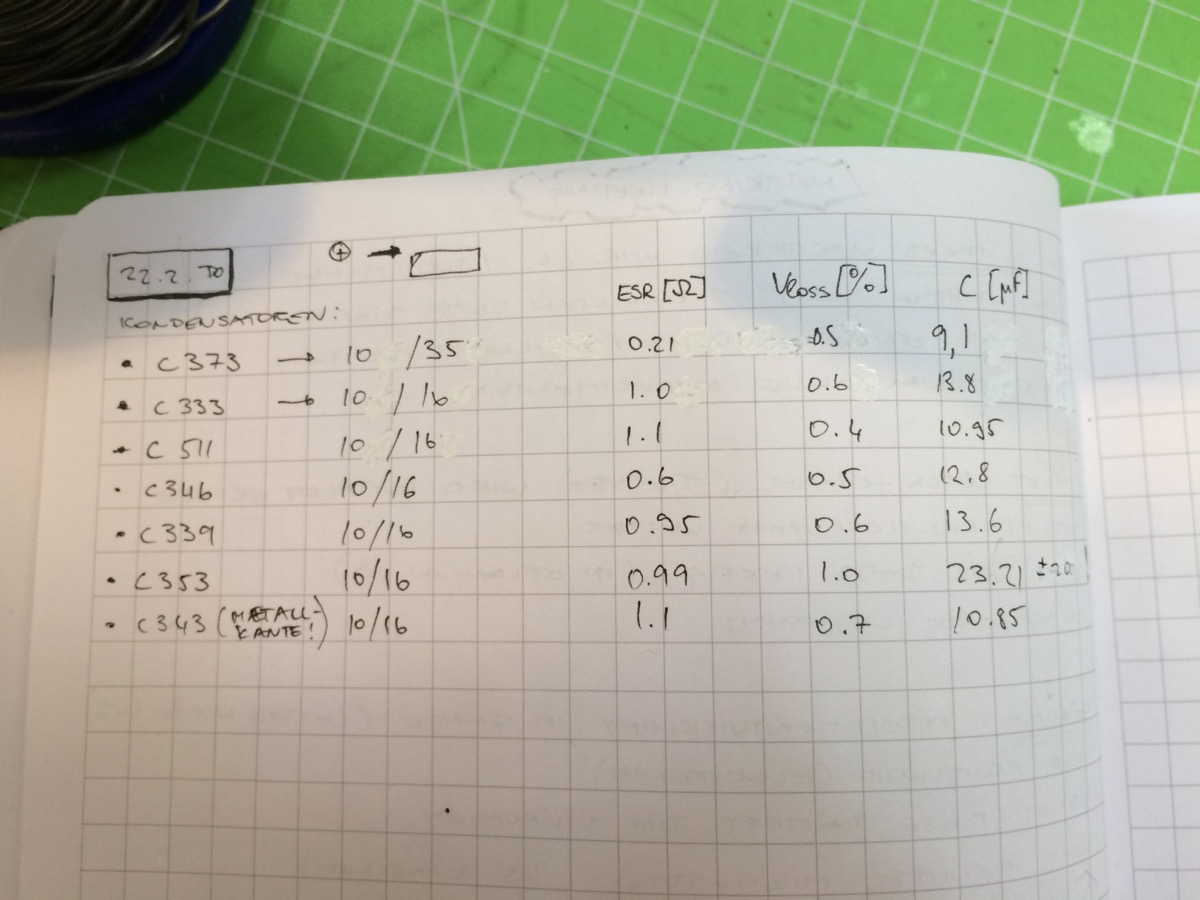 22.2.
⊕ →
ESR [Ω] Vloss [%] C [µF]
KONDENSATOREN:
• C373 → 10 /35 0.21 0.5 9,1
• C333 → 10 / 16 1.0 0.6 13.8
• C 511 10 / 16 1.1 0.4 10.95
• C346 10/16 0.6 0.5 12.8
• C339 10/16 0.95 0.6 13.6
• C353 10/16 0.99 1.0 23.21
• C343 (METALL-KANTE!) 10/16 1.1 0.7 10.85